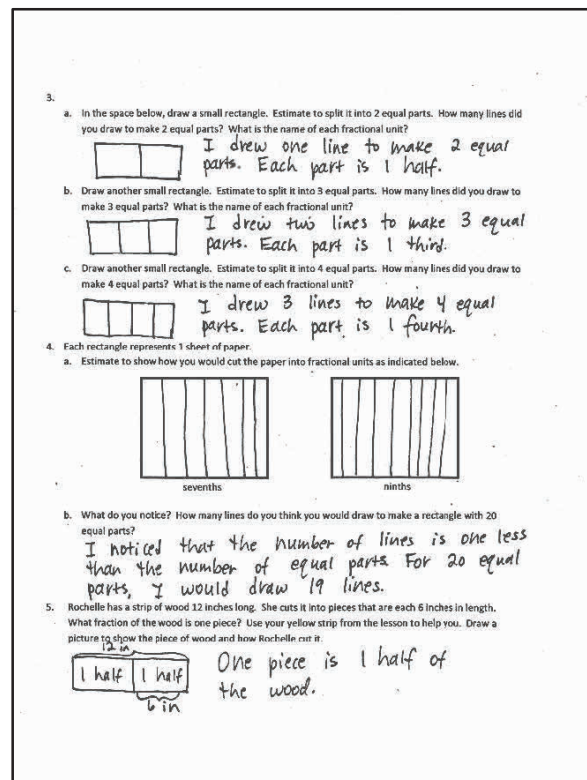 3.
a. In the space below, draw a small rectangle. Estimate to split it into 2 equal parts. How many lines did
you draw to make 2 equal parts? What is the name of each fractional unit?
I drew one line to make 2 equal
parts. Each part is 1 half.
b. Draw another small rectangle. Estimate to split it into 3 equal parts. How many lines did you draw to
make 3 equal parts? What is the name of each fractional unit?
I drew two lines to make 3 equal
parts. Each part is 1 third.
c. Draw another small rectangle. Estimate to split it into 4 equal parts. How many lines did you draw to
make 4 equal parts? What is the name of each fractional unit?
I drew 3 lines to make 4 equal
parts. Each part is 1 fourth.
4. Each rectangle represents 1 sheet of paper.
a. Estimate to show how you would cut the paper into fractional units as indicated below.
sevenths
ninths
b. What do you notice? How many lines do you think you would draw to make a rectangle with 20
equal parts?
I noticed that the number of lines is one less
than the number of equal parts. For 20 equal
parts, I would draw 19 lines.
5. Rochelle has a strip of wood 12 inches long. She cuts it into pieces that are each 6 inches in length.
What fraction of the wood is one piece? Use your yellow strip from the lesson to help you. Draw a
picture to show the piece of wood and how Rochelle cut it.
12 in
1 half 1 half
6 in
One piece is 1 half of
the wood.